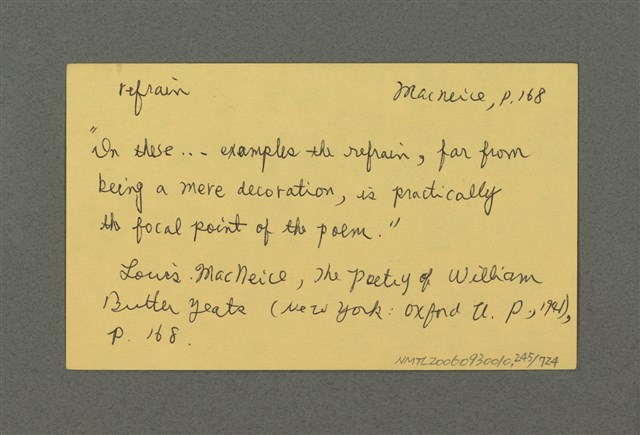 refrain MacNeice, p. 168
"In these ... examples the refrain, far from
being a mere decoration, is practically
the focal point of the poem."
Louis MacNeice, The Poetry of William
Butler Yeats (New York: Oxford U. P., 1941),
p. 168.
NMTL20060930010, 245/724